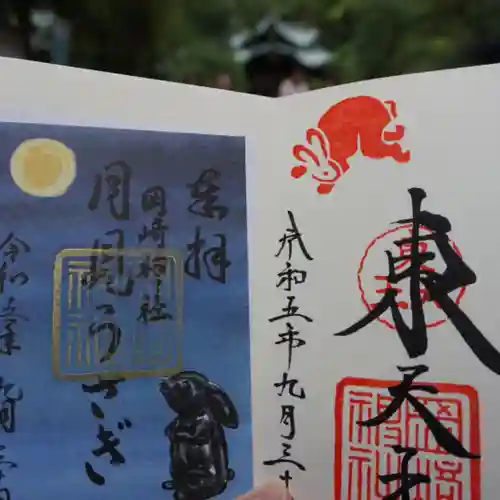 東天王
令和五年九月三十
奉拝
岡崎神社
月見うさぎ
令和五年九月三十